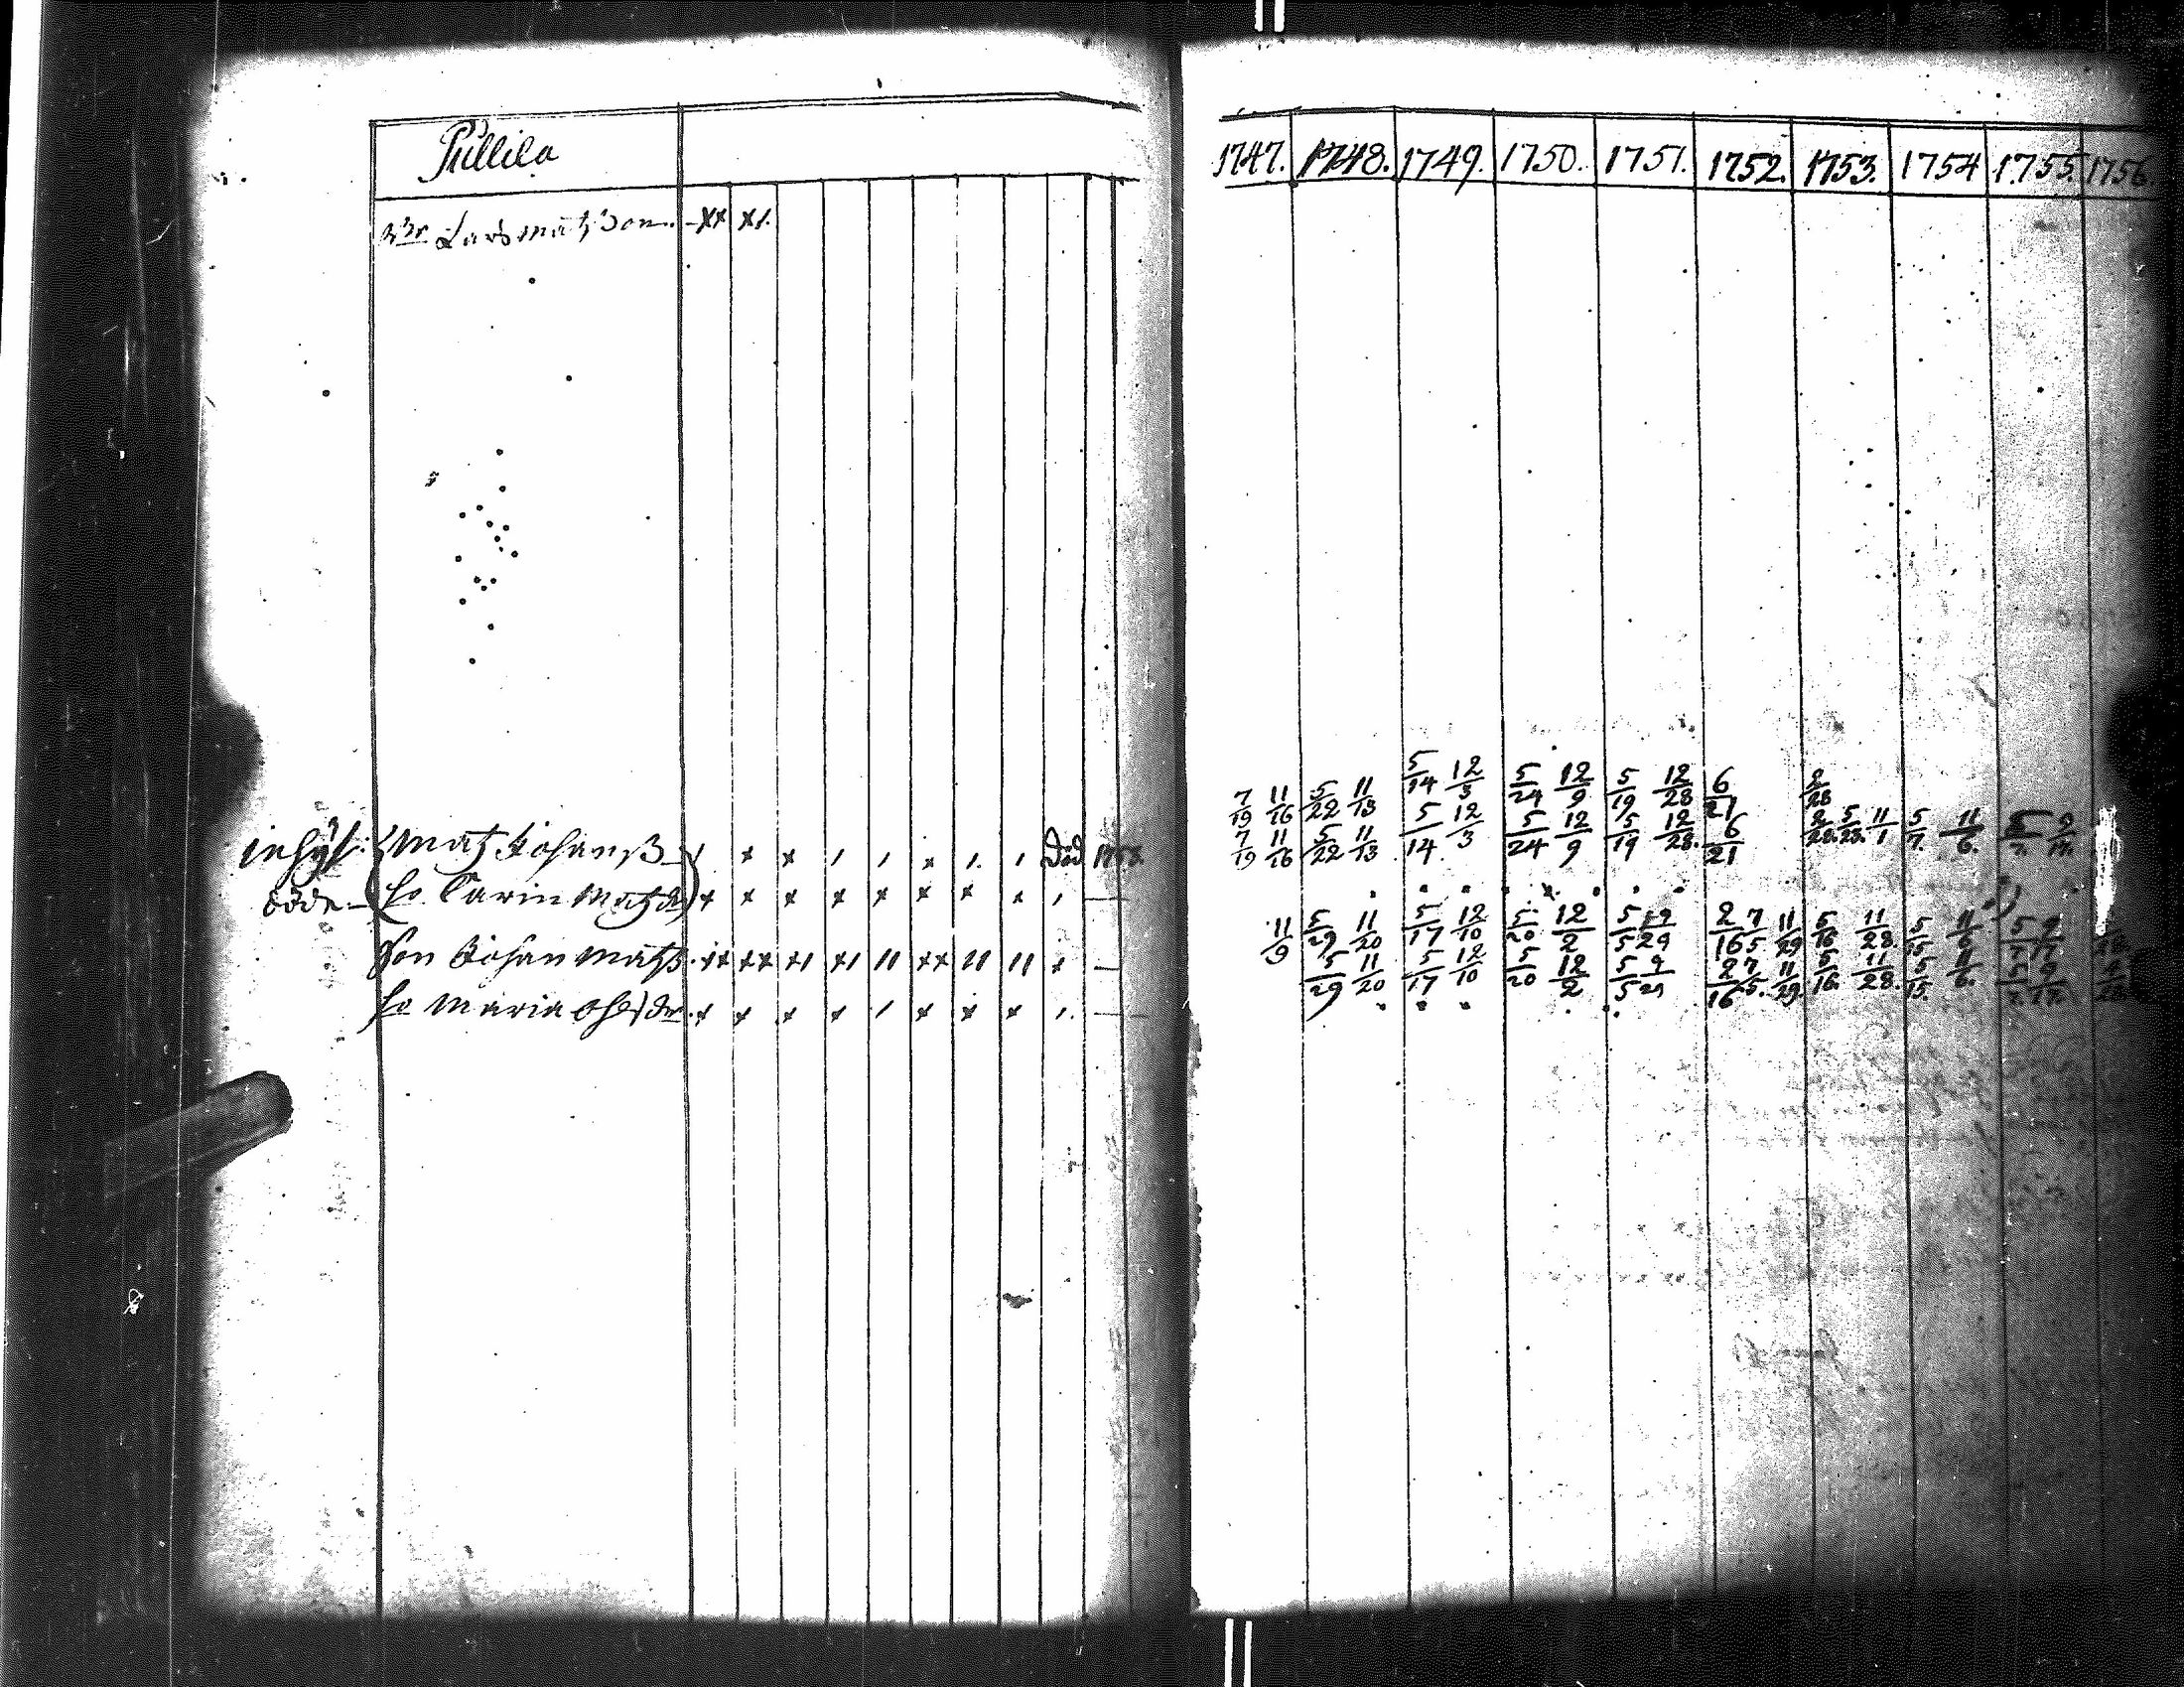 Pullila
Lars Matzson. xx x1.
inhys: Matz Johanß 1 x x 1 1 x 1. 1 död
döde - ho. Carin Matzdr x x x x x x x x 1 —
Son Johan Matß. xx xx x1 x1 11 xx 11 11 x —
ho Maria Ohlsdr. x x x x 1 x x x 1. —
1747. 1748. 1749. 1750. 1751. 1752. 1753. 1754 1755. 1756.
7/19 11/16 5/22 11/13 5/14 12/3 5/24 12/9 5/19 12/28 6/21 2/28
7/19 11/16 5/22 11/13 5/14 12/3 5/24 12/9 5/19 12/28. 6/21 2/28. 5/23. 11/1 5/7. 11/6.
11/9 5/29 11/20 5/17 12/10 5/20 12/2 5/5 9/29 2/16 7/5 11/29 5/16 11/28. 5/15 11/6
5/29 11/20 5/17 12/10 5/20 12/2 5/5 9/29 2/16 7/5. 11/29. 5/16. 11/28. 5/15. 11/6.